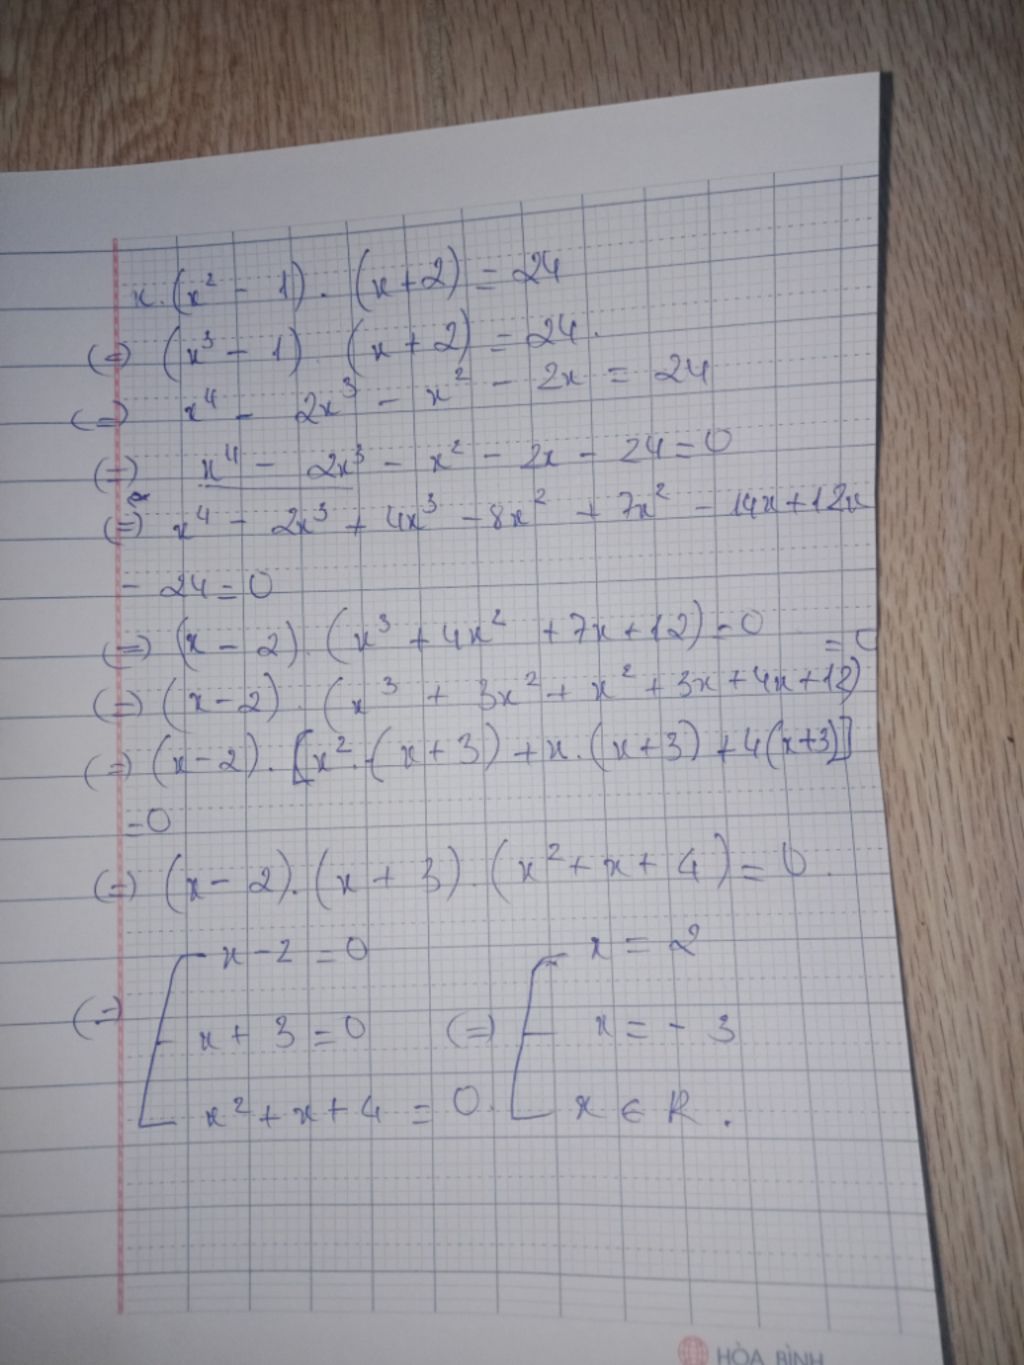 x.(x² - 1).(x+2) = 24
(=) (x³ - 1) (x + 2) = 24.
(=) x⁴ - 2x³ - x² - 2x = 24
(=) x⁴ - 2x³ - x² - 2x - 24 = 0
(=) x⁴ - 2x³ + 4x³ - 8x² + 7x² - 14x + 12x
- 24 = 0
(=) (x - 2).(x³ + 4x² + 7x + 12) = 0
(=) (x - 2).(x³ + 3x² + x² + 3x + 4x + 12) = 0
(=) (x - 2).[x².(x + 3) + x.(x + 3) + 4(x+3)]
= 0
(=) (x - 2).(x + 3).(x² + x + 4) = 0.
(=) [ x - 2 = 0 [ x = 2
x + 3 = 0 (=) x = - 3
x² + x + 4 = 0. x ∈ R.
HÒA BÌNH